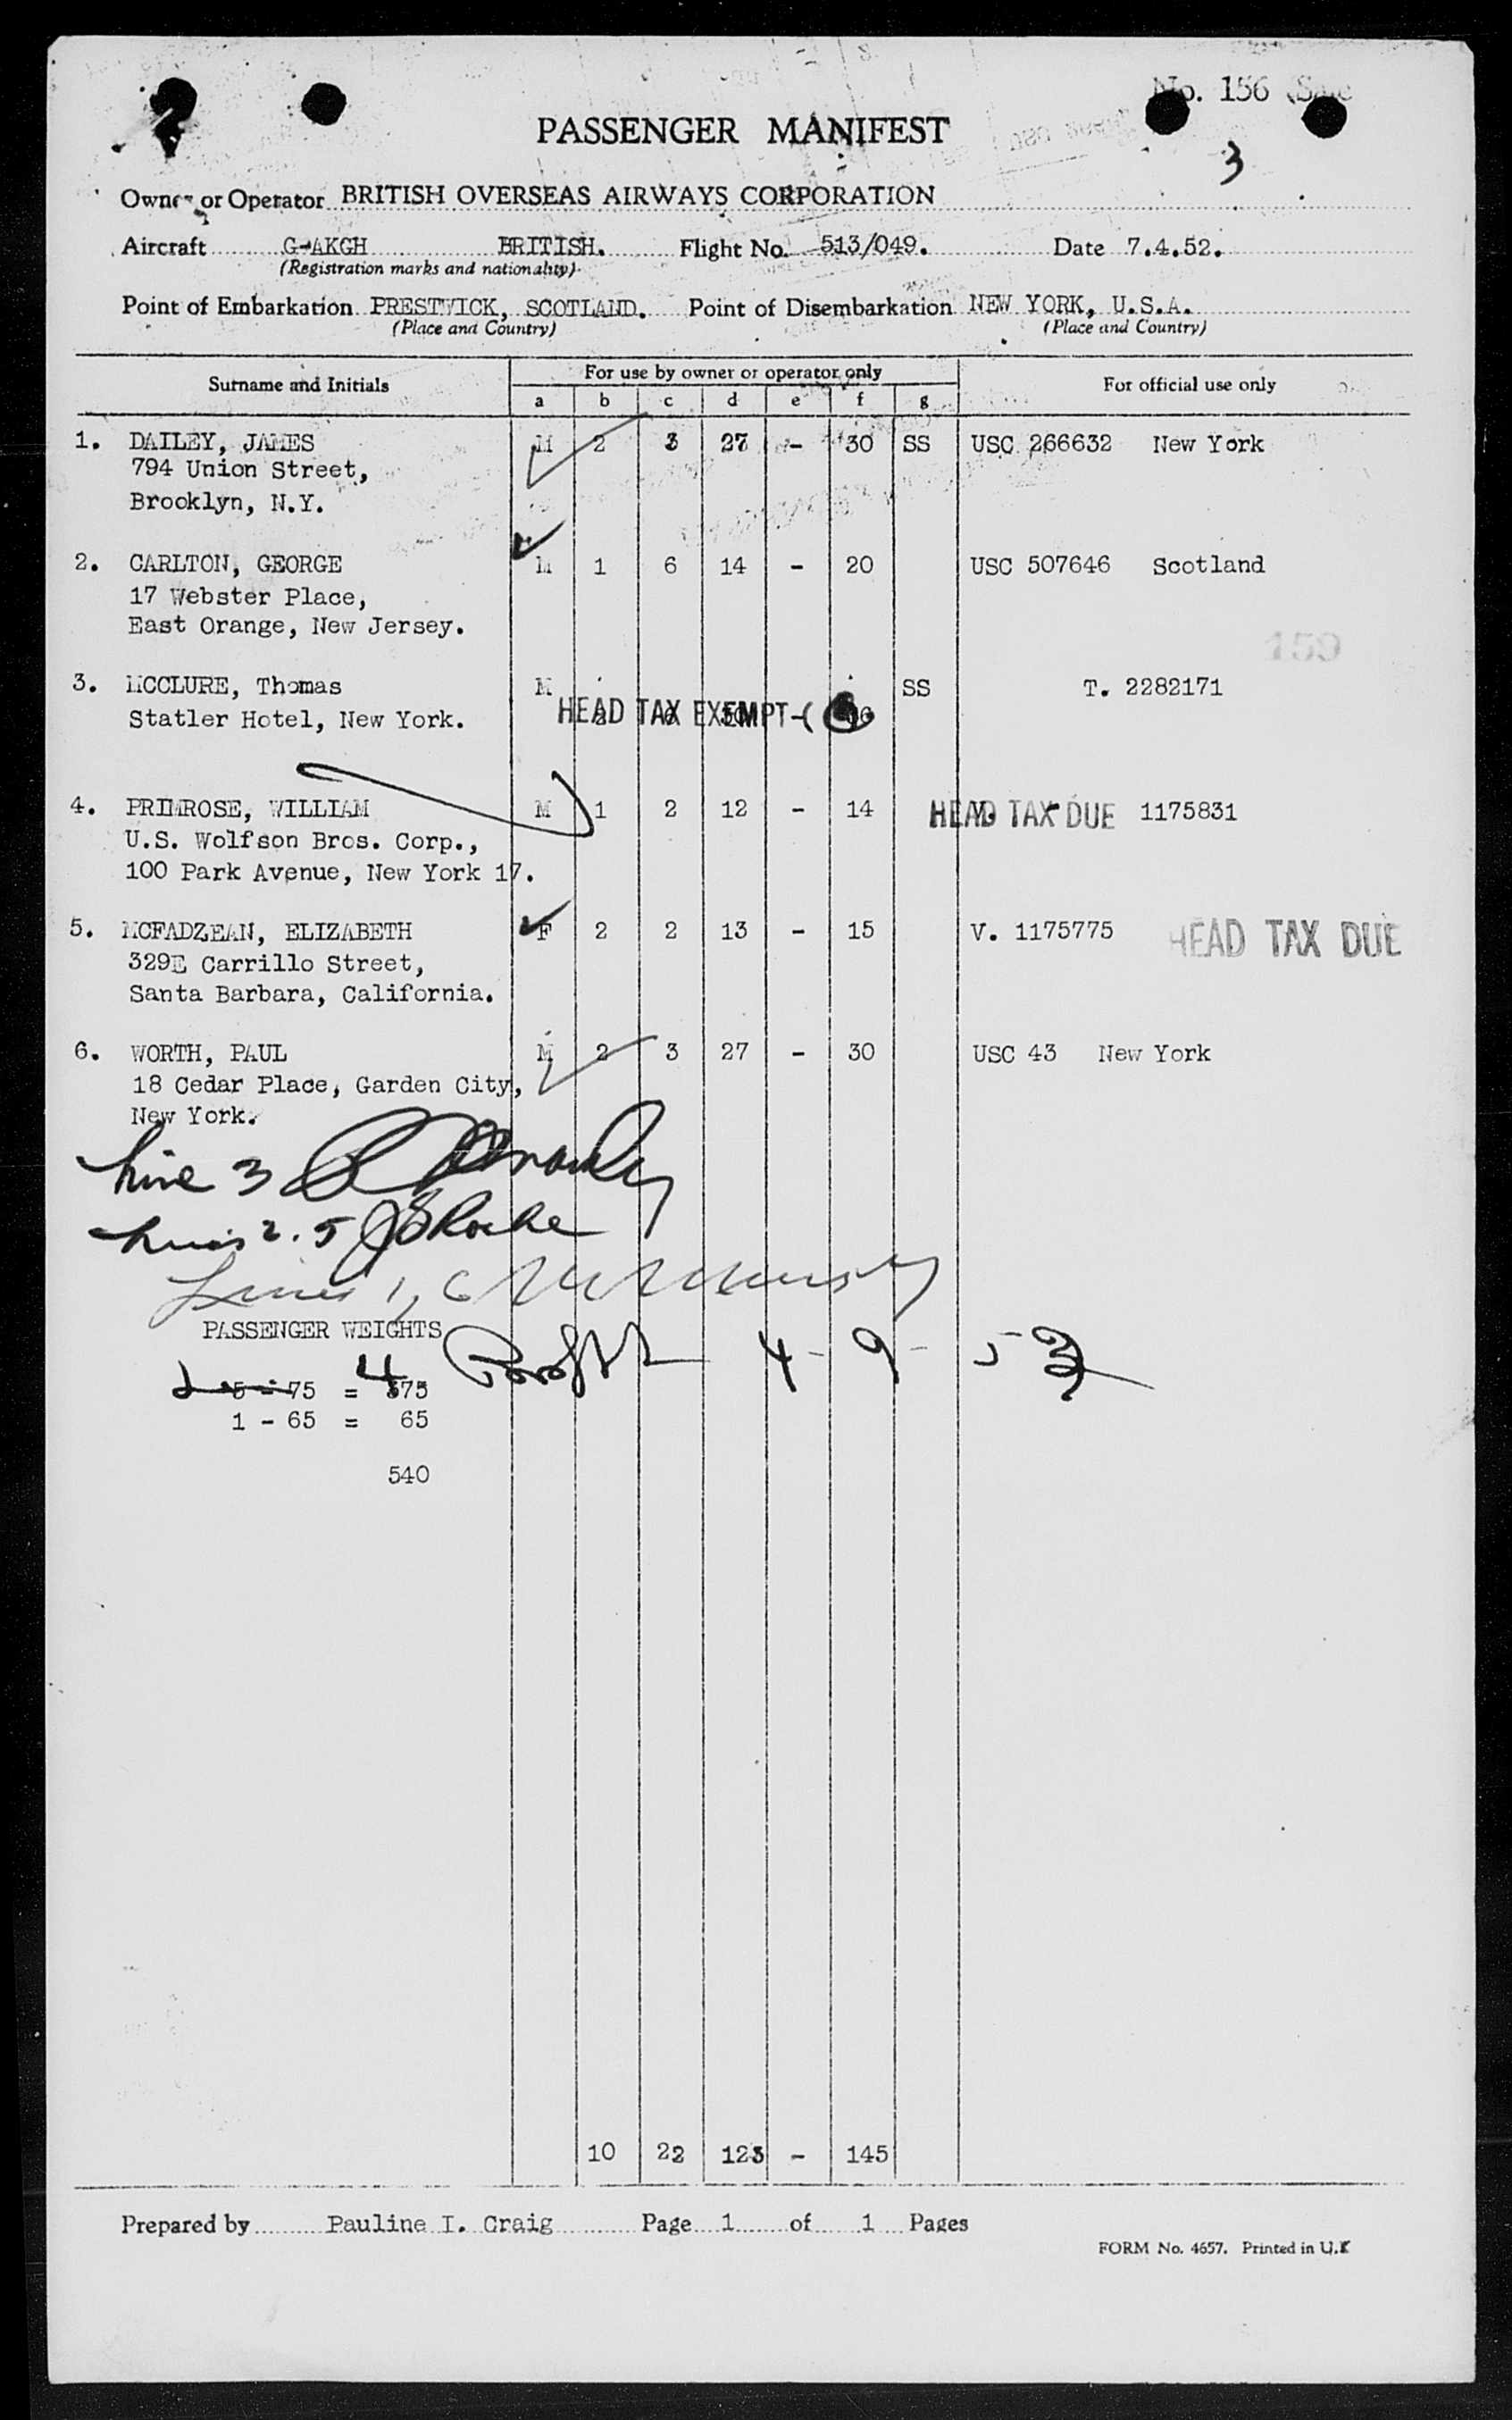 No. 156
PASSENGER MANIFEST
3
Owner or Operator BRITISH OVERSEAS AIRWAYS CORPORATION
Aircraft G-AKGH BRITISH. Flight No. 513/049. Date 7.4.52.
(Registration marks and nationality)
Point of Embarkation PRESTWICK, SCOTLAND. Point of Disembarkation NEW YORK, U.S.A.
(Place and Country) (Place and Country)
Surname and Initials For use by owner or operator only For official use only
a b c d e f g
1. DAILEY, JAMES M 2 3 27 - 30 SS USC 266632 New York
794 Union Street,
Brooklyn, N.Y.
2. CARLTON, GEORGE M 1 6 14 - 20 USC 507646 Scotland
17 Webster Place,
East Orange, New Jersey.
159
3. MCCLURE, Thomas M SS T. 2282171
Statler Hotel, New York. HEAD TAX EXEMPT-(
4. PRIMROSE, WILLIAM M 1 2 12 - 14 HEAD TAX DUE 1175831
U.S. Wolfson Bros. Corp.,
100 Park Avenue, New York 17.
5. MCFADZEAN, ELIZABETH F 2 2 13 - 15 V. 1175775 HEAD TAX DUE
329E Carrillo Street,
Santa Barbara, California.
6. WORTH, PAUL M 2 3 27 - 30 USC 43 New York
18 Cedar Place, Garden City,
New York.
line 3
lines 2. 5
Lines 1, 6
PASSENGER WEIGHTS
4-9-52
5 - 75 = 375
1 - 65 = 65
540
10 22 123 - 145
Prepared by Pauline I. Craig Page 1 of 1 Pages
FORM No. 4657. Printed in U.K